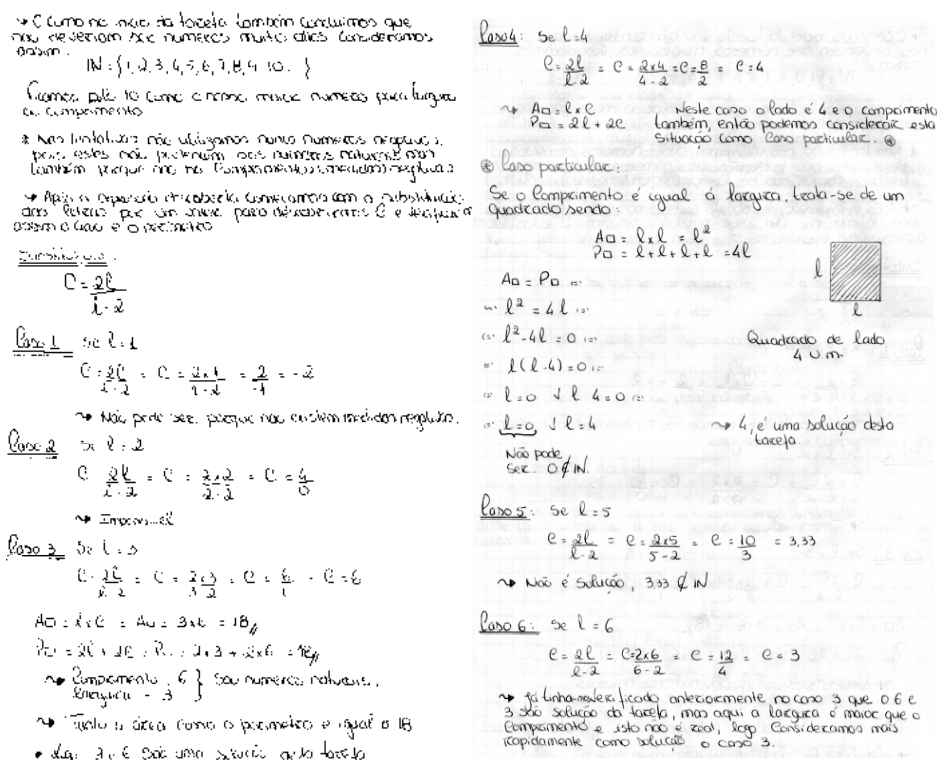 → E como no início da tarefa também concluímos que
não deveriam ser números muito altos consideramos
assim.
IN = {1, 2, 3, 4, 5, 6, 7, 8, 9, 10. }
Ficamos pelo 10 como o nosso maior número para largura
ou comprimento
* Nas tentativas não utilizamos números negativos,
pois estes não pertencem aos números naturais mas
também porque não há comprimentos (medidas) negativas
→ Após a expressão descoberta começamos com a substituição
das letras por um valor para descobrirmos C e
assim a área e o perímetro
C = 2l / l - 2
Caso 1 Se l = 1
C = 2l / l - 2 = C = 2x1 / 1 - 2 = 2 / -1 = -2
↝ Não pode ser, porque não existem medidas negativas.
Caso 2 Se l = 2
C = 2l / l - 2 = C = 2x2 / 2 - 2 = C = 4 / 0
↝ Impossível
Caso 3 Se l = 3
C = 2l / l - 2 = C = 2x3 / 3 - 2 = C = 6 / 1 = C = 6
A□ = l x C = A□ = 3x6 = 18//
P□ = 2l + 2C = P□ = 2x3 + 2x6 = 18//
↝ Comprimento - 6 } São números naturais.
Largura - 3
↝ Tanto a área como o perímetro é igual a 18
• Logo 3 e 6 são uma solução desta tarefa
Caso 4: Se l = 4
C = 2l / l - 2 = C = 2x4 / 4 - 2 = C = 8 / 2 = C = 4
↝ A□ = l x C
P□ = 2l + 2C
Neste caso o lado é 4 e o comprimento
também, então podemos considerar esta
situação como caso particular. ⊛
⊛ Caso particular:
Se o comprimento é igual á largura, trata-se de um
quadrado sendo:
A□ = l x l = l²
P□ = l + l + l + l = 4l
l
l
A□ = P□ (=)
(=) l² = 4l (=)
(=) l² - 4l = 0 (=)
Quadrado de lado
4 u.m.
(=) l(l - 4) = 0 (=)
(=) l = 0 V l - 4 = 0 (=)
(=) l = 0 V l = 4
↝ 4, é uma solução desta
tarefa.
Não pode
ser. 0 ∉ IN.
Caso 5: Se l = 5
C = 2l / l - 2 = C = 2x5 / 5 - 2 = C = 10 / 3 = 3,33
↝ Não é solução, 3,33 ∉ IN
Caso 6: Se l = 6
C = 2l / l - 2 = C = 2x6 / 6 - 2 = C = 12 / 4 = C = 3
↝ Já tinha verificado anteriormente no caso 3 que o 6 e
3 são solução da tarefa, mas aqui a largura é maior que o
comprimento e isto não é real, logo consideramos mais
rapidamente como solução o caso 3.